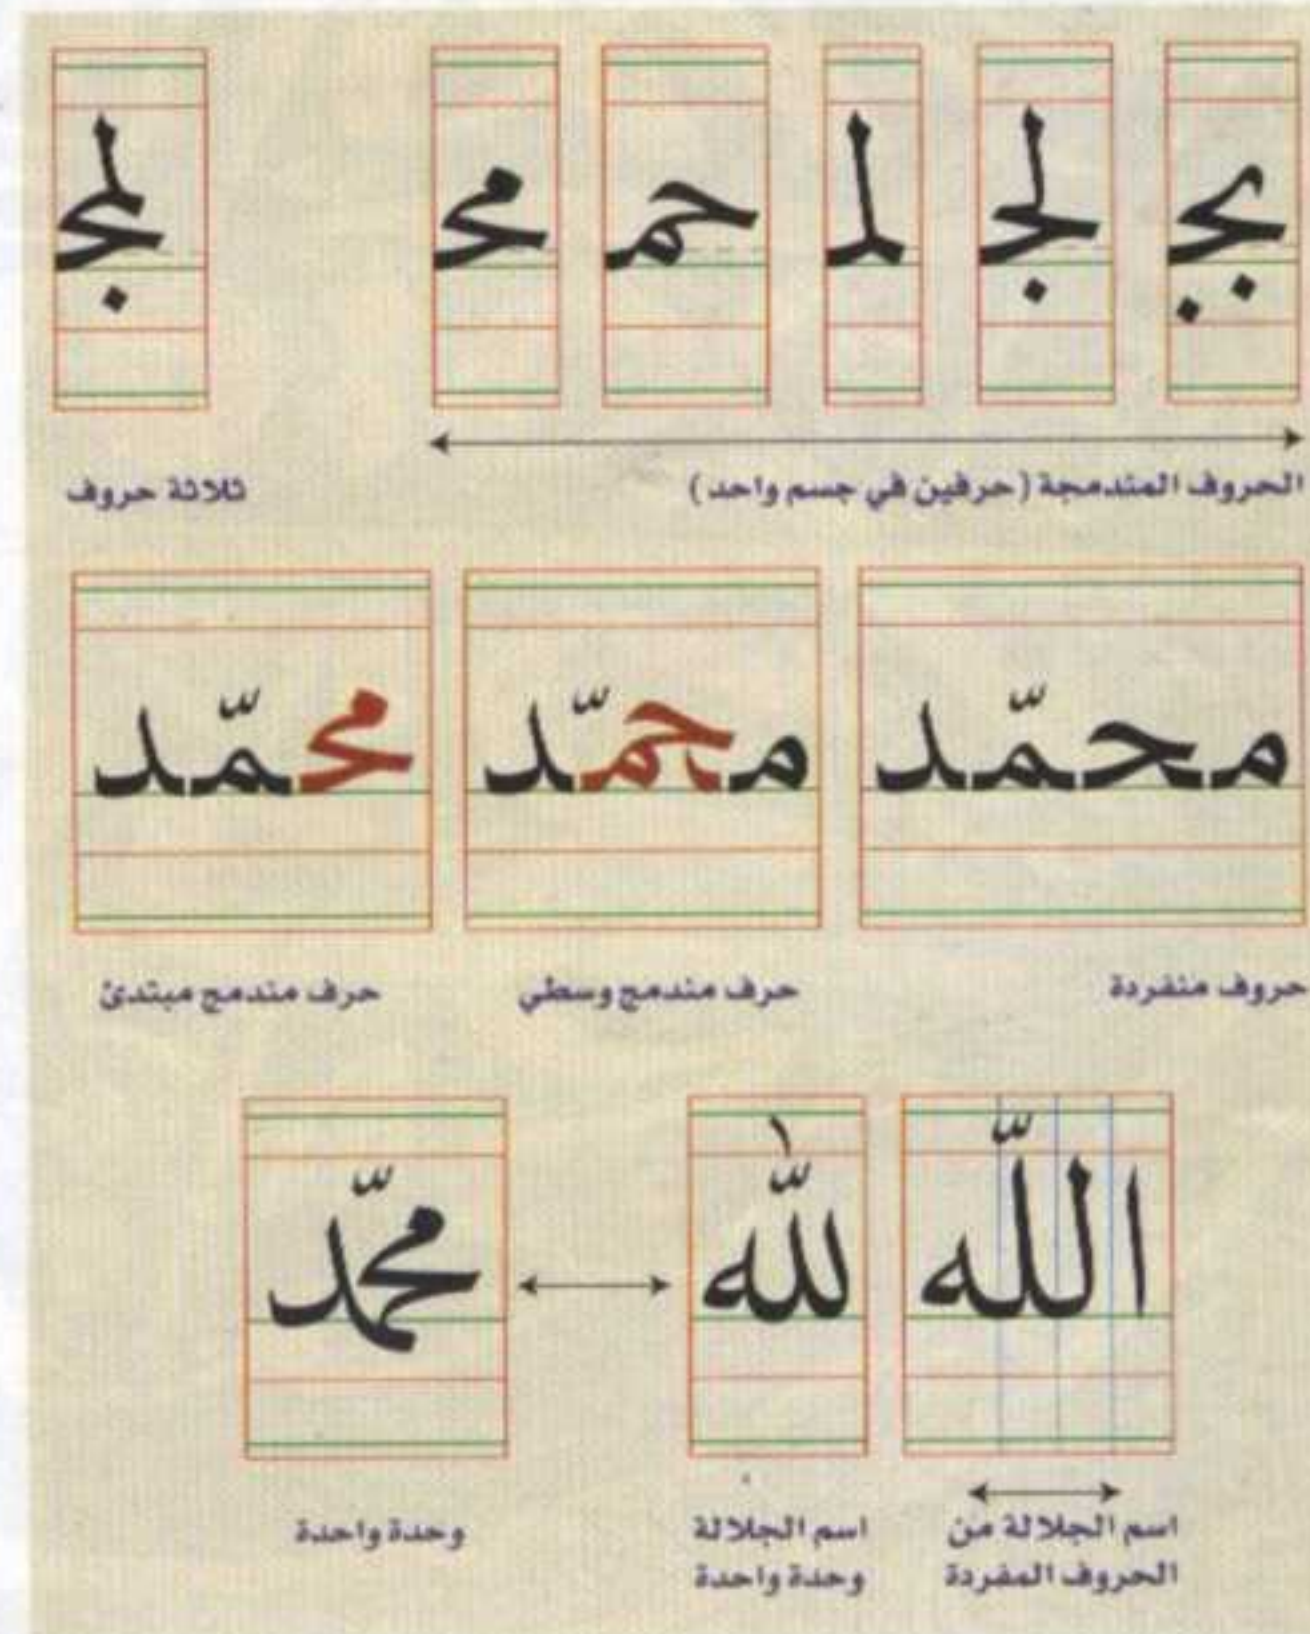 بجـ لجـ لمـ حمـ محـ لمجـ
الحروف المندمجة (حرفين في جسم واحد) ثلاثة حروف
محمّد محمّد محمّد
حروف منفردة حرف مندمج وسطي حرف مندمج مبتدئ
اللّه للّٰه محمّد
اسم الجلالة من اسم الجلالة وحدة واحدة
الحروف المفردة وحدة واحدة